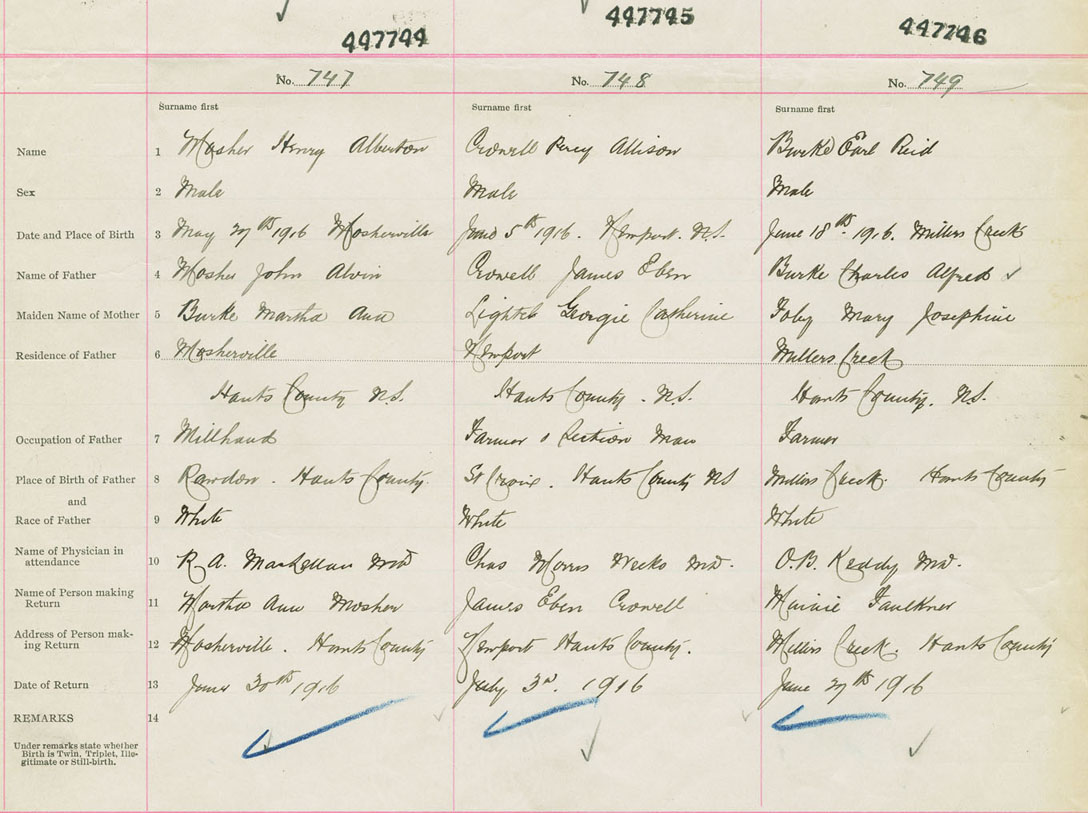 447744 447745 447746
No. 747 No. 748 No. 749
Surname first Surname first Surname first
Name 1 Mosher Henry Alberton Crowell Percy Allison Burke Earl Reid
Sex 2 Male Male Male
Date and Place of Birth 3 May 27th 1916 Mosherville June 5th 1916. Newport. N.S. June 18th 1916. Millers Creek
Name of Father 4 Mosher John Alvin Crowell James Eben Burke Charles Alfred ✓
Maiden Name of Mother 5 Burke Martha Ann Georgie Catherine Mary Josephine
Residence of Father 6 Mosherville Newport Millers Creek
Hants County N.S. Hants County. N.S. Hants County. N.S.
Occupation of Father 7 Millhand Farmer & Section Man Farmer
Place of Birth of Father 8 Rawdon. Hants County. St Croix. Hants County NS Millers Creek. Hants County
and
Race of Father 9 White White White
Name of Physician in
attendance 10 R. A. MD Chas Morris MD. O.B. Keddy MD.
Name of Person making
Return 11 Martha Ann Mosher James Eben Crowell Minnie Faulkner
Address of Person mak-
ing Return 12 Mosherville. Hants County Newport Hants County. Millers Creek. Hants County
Date of Return 13 June 30th 1916 July 3rd. 1916 June 27th 1916
REMARKS 14
Under remarks state whether
Birth is Twin, Triplet, Ille-
gitimate or Still-birth.